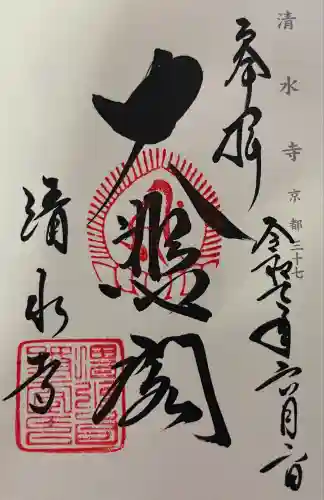 清水寺 京都三十七
奉拝
令和七年六月二日
大悲閣
清水寺